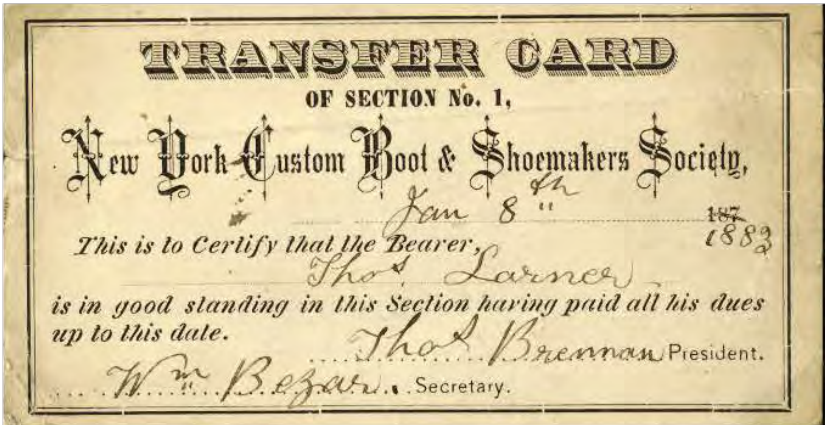 TRANSFER CARD
OF SECTION No. 1,
New York Custom Boot & Shoemakers Society,
Jan 8th 187
1883
This is to Certify that the Bearer,
Thos. Larner
is in good standing in this Section having paid all his dues
up to this date.
Thos Brennan President.
Wm Bezar. Secretary.